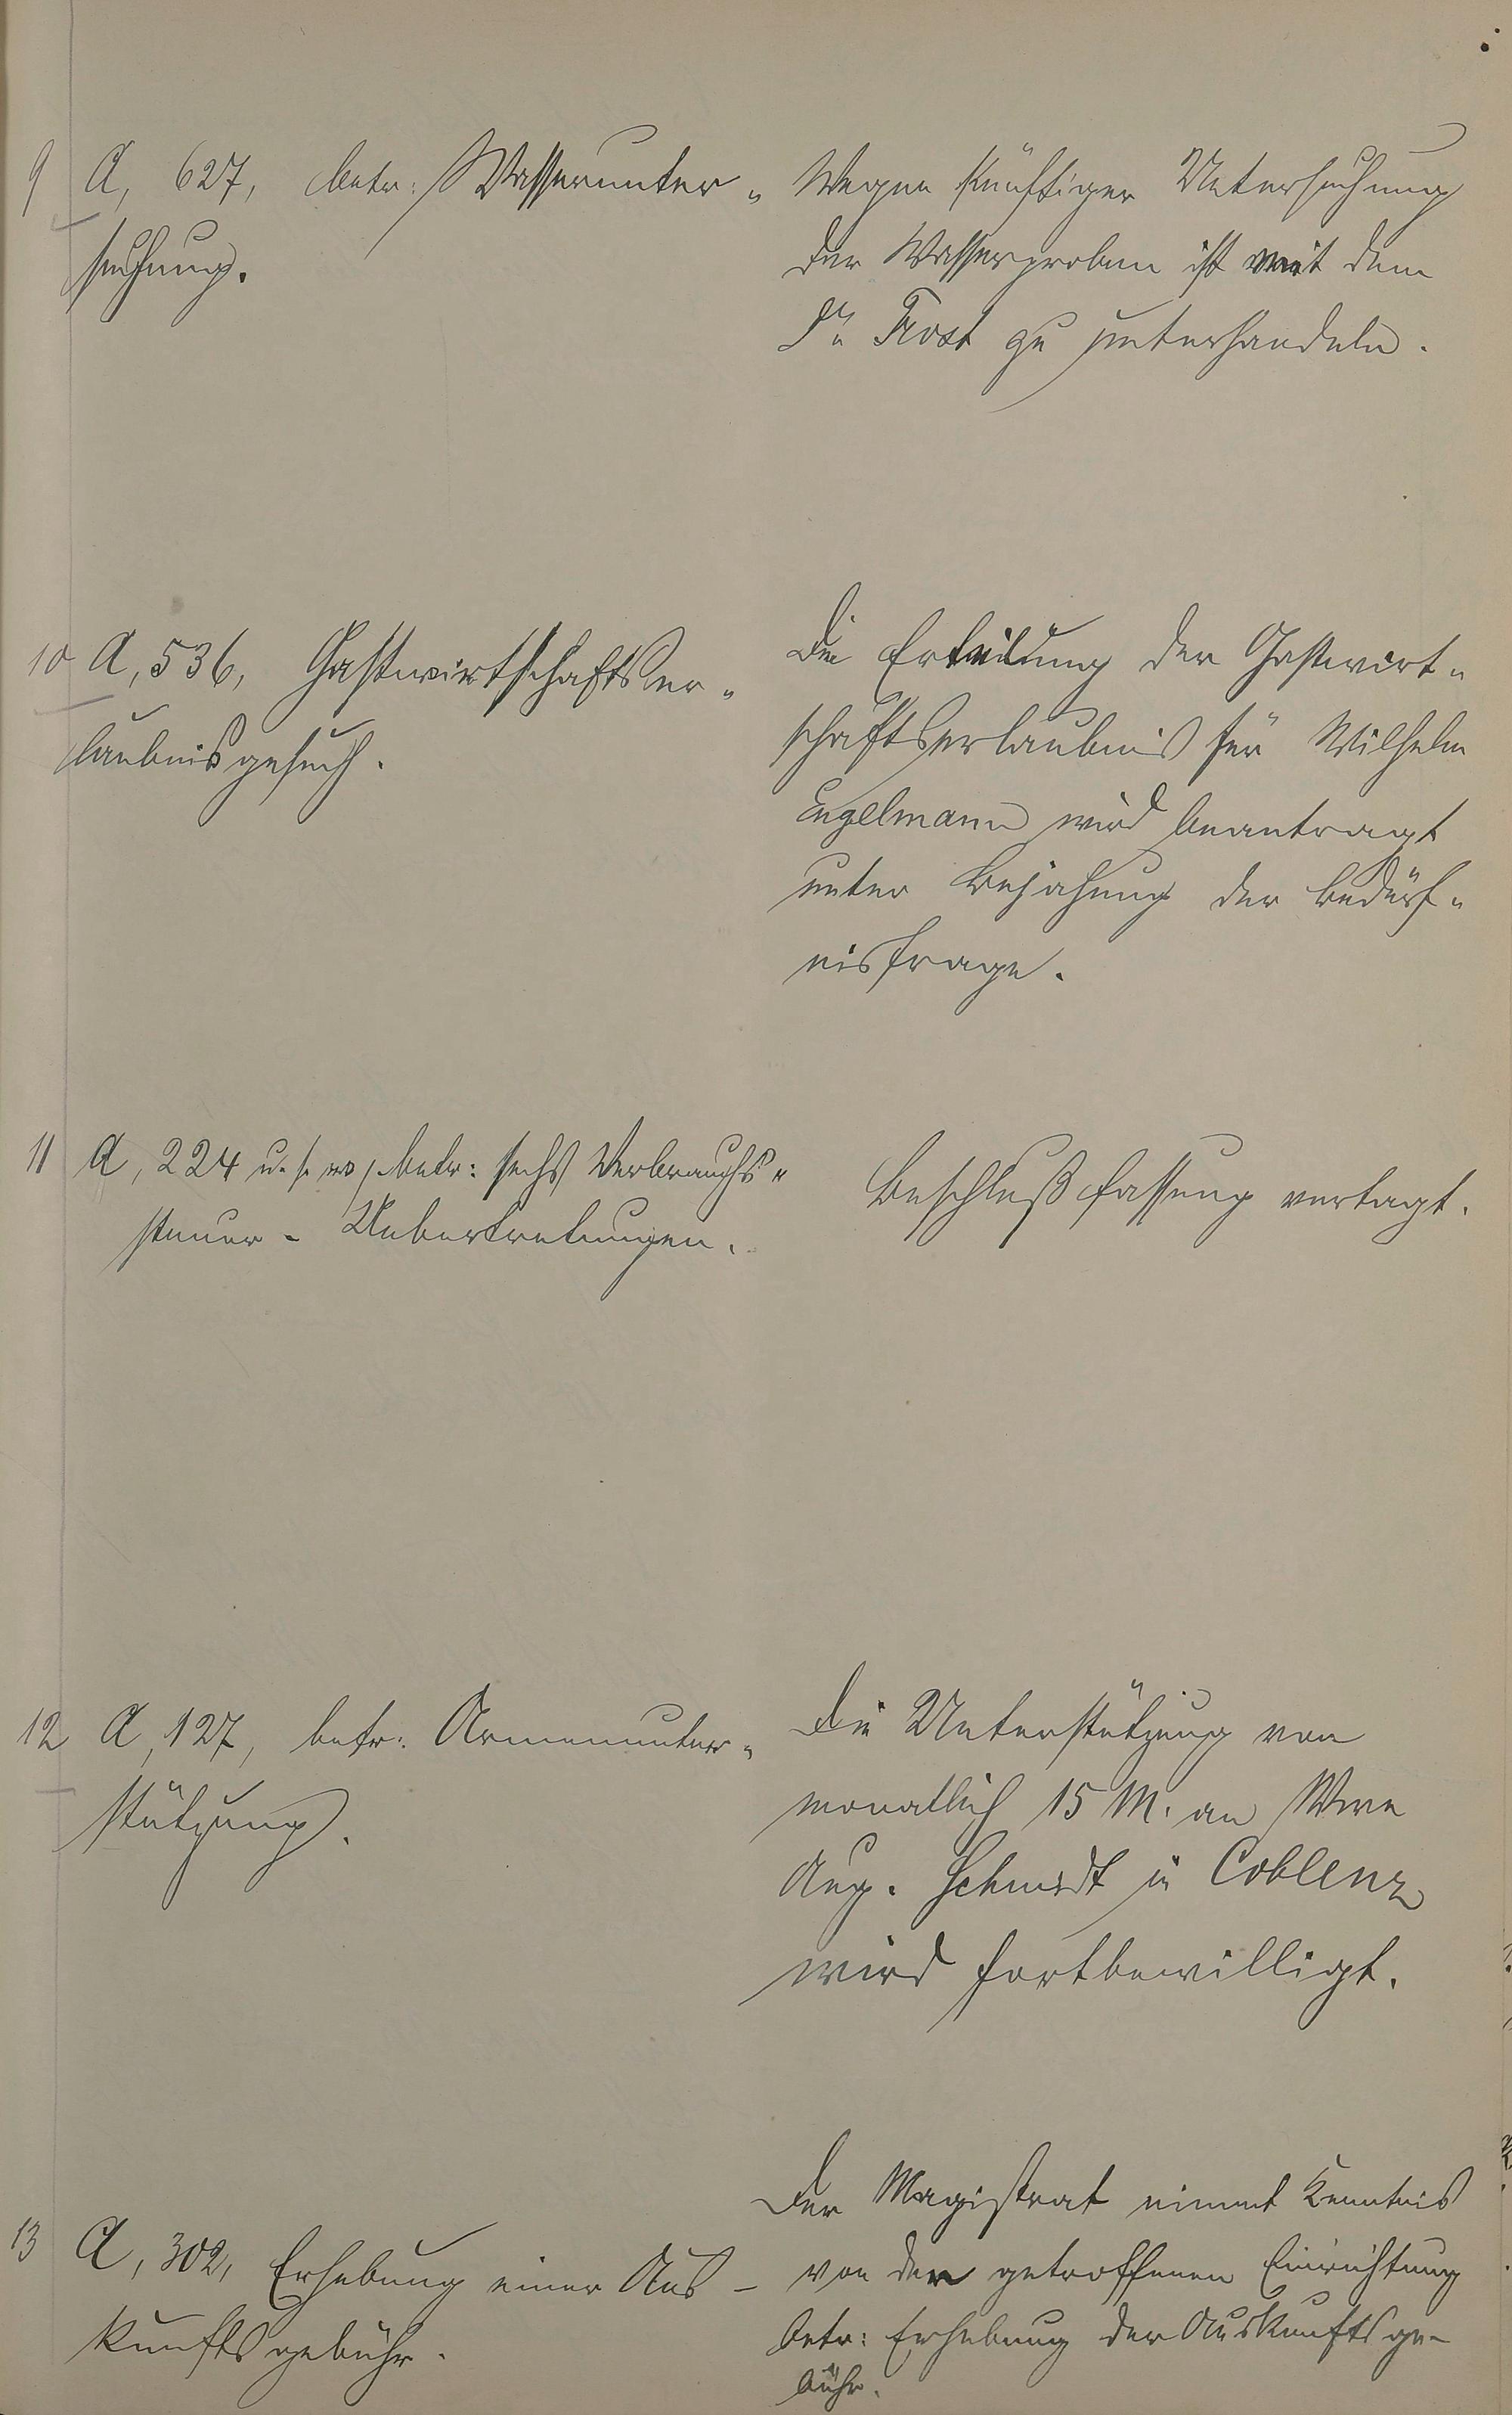 9 A, 627, betr. Wasserunter-
suchung.
Wegen künftiger Untersuchung
der Wasserproben ist mit dem
Dr. Frost zu unterhandeln.
10 A, 536, Gastwirtschaftser-
laubnisgesuch.
Die Erteilung der Gastwirt-
schaftserlaubnis für Wilhelm
Engelmann wird beantragt
unter Bejahung der Bedürf-
nisfrage.
11 A, 224 u. s. w, betr: sechs Verbrauchs-
steuer-Uebertretungen.
Beschlußfassung vertagt.
12 A, 127, betr. Armenunter-
stützung.
Die Unterstützung von
monatlich 15 M. an Wwe
Aug. Schmidt in Coblenz
wird fortbewilligt.
13 A, 302, Erhebung einer Aus-
kunftsgebühr.
Der Magistrat nimmt Kenntnis
von der getroffenen Einrichtung
betr: Erhebung der Auskunftsge-
bühr.